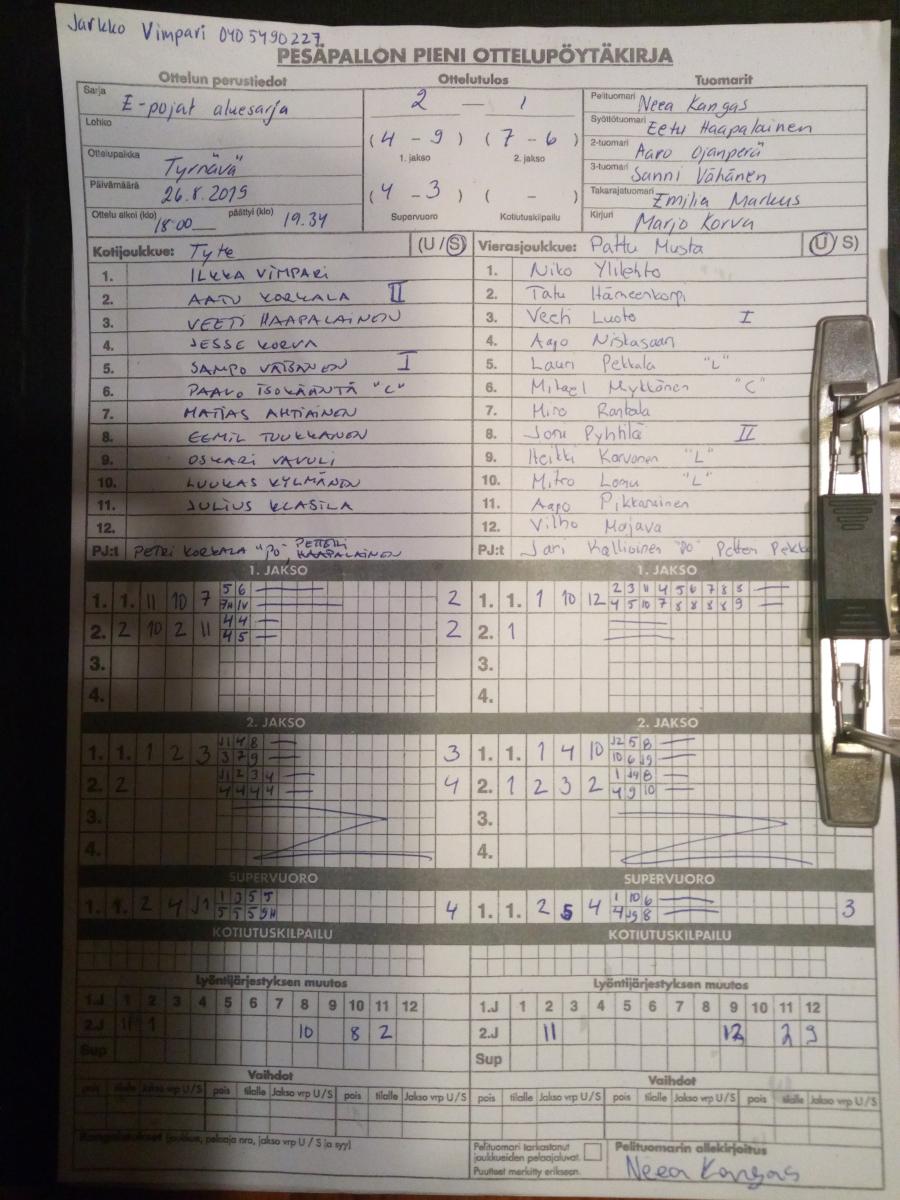 Jarkko Vimpari 040 5490227
PESÄPALLON PIENI OTTELUPÖYTÄKIRJA
Ottelun perustiedot Ottelutulos Tuomarit
Sarja E-pojat aluesarja
Lohko
Ottelupaikka Tyrnävä
Päivämäärä 26.8.2019
Ottelu alkoi (klo) 18:00 päättyi (klo) 19.34
2 – 1
( 4 - 9 ) ( 7 - 6 )
1. jakso 2. jakso
( 4 - 3 ) ( - )
Supervuoro Kotiutuskilpailu
Pelituomari Neea Kangas
Syöttötuomari Eetu Haapalainen
2-tuomari Aaro Ojanperä
3-tuomari Sanni Vähänen
Takarajatuomari Emilia Markus
Kirjuri Marjo Korva
Kotijoukkue: Tyte (U / S)
1. ILKKA VIMPARI
2. AATU KORKALA II
3. VEETI HAAPALAINEN
4. JESSE KORVA
5. SAMPO VÄISÄNEN I
6. PAAVO ISOKÄÄNTÄ "C"
7. MATIAS AHTIAINEN
8. EEMIL TUUKKANEN
9. OSKARI VAVULI
10. LUUKAS KYLMÄNEN
11. JULIUS KLASILA
12.
PJ:t PETRI KORKALA "PO", PETTERI HAAPALAINEN
Vierasjoukkue: Pattu Musta (U / S)
1. Niko Ylilehto
2. Tatu Hämeenkorpi
3. Veeti Luoto I
4. Aapo Niskasaari
5. Lauri Pekkala "L"
6. Mikael Mykkänen "C"
7. Miro Rantala
8. Joru Pyhtilä II
9. Heikki Karvonen "L"
10. Mitro Lomu "L"
11. Aapo Pikkarainen
12. Vilho Majava
PJ:t Jari Kallioinen "PO", Petteri
1. JAKSO
1. 1. 11 10 7 2
2. 2 10 2 11 2
3.
4.
1. JAKSO
1. 1. 1 10 12
2. 1
3.
4.
2. JAKSO
1. 1. 1 2 3 3
2. 2 4
3.
4.
2. JAKSO
1. 1. 1 4 10
2. 1 2 3 2
3.
4.
SUPERVUORO
1. 1. 2 4 J1 4
SUPERVUORO
1. 1. 2 5 4 3
KOTIUTUSKILPAILU
KOTIUTUSKILPAILU
Lyöntijärjestyksen muutos
1.J 1 2 3 4 5 6 7 8 9 10 11 12
2.J 11 1 10 8 2
Sup
Lyöntijärjestyksen muutos
1.J 1 2 3 4 5 6 7 8 9 10 11 12
2.J 11 12 2 9
Sup
Vaihdot
pois tilalle Jakso vrp U / S pois tilalle Jakso vrp U / S pois tilalle Jakso vrp U / S
Vaihdot
pois tilalle Jakso vrp U / S pois tilalle Jakso vrp U / S pois tilalle Jakso vrp U / S
Rangaistukset (joukkue, pelaaja nro, jakso vrp U / S ja syy)
Pelituomari tarkastanut
joukkueiden pelaajaluvat.
Puutteet merkitty erikseen.
Pelituomarin allekirjoitus
Neea Kangas